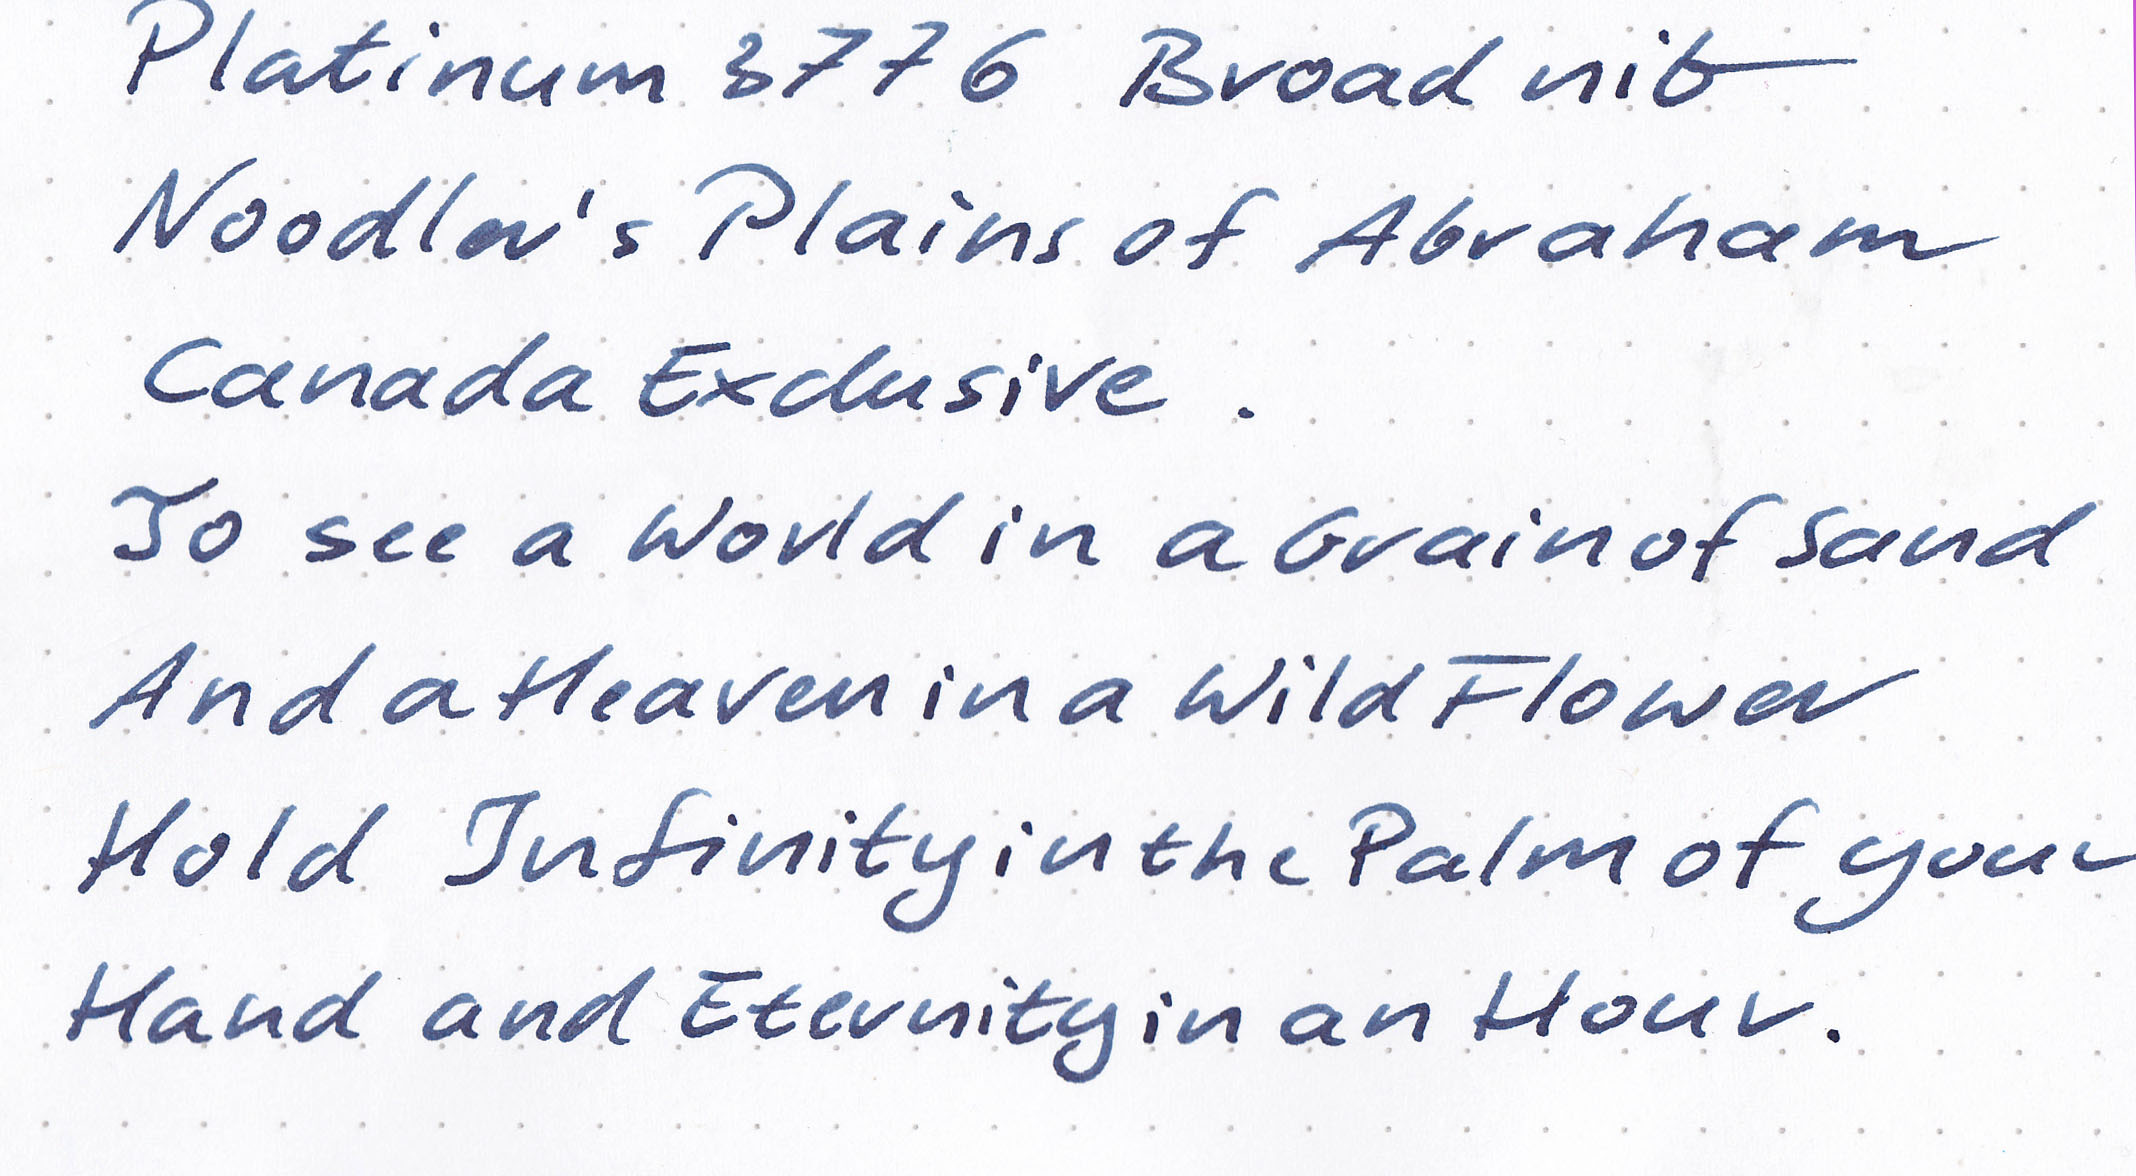 Platinum 3776 Broad nib
Noodler's Plains of Abraham
Canada Exclusive.
To see a World in a Grain of Sand
And a Heaven in a Wild Flower
Hold Infinity in the Palm of your
Hand and Eternity in an Hour.